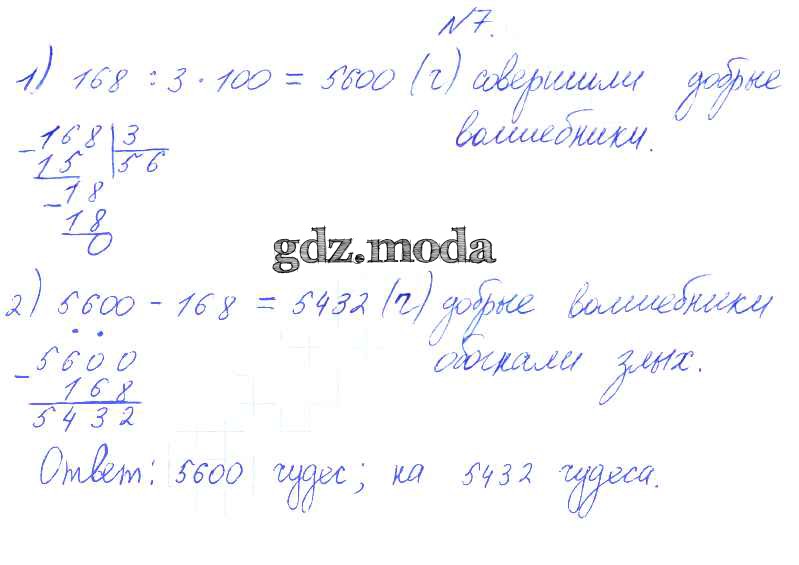 №7.
1) 168 : 3 · 100 = 5600 (ч) совершили добрые
волшебники.
- 168 | 3
15 | 56
- 18
18
0
gdz.moda
2) 5600 - 168 = 5432 (ч) добрые волшебники
обогнали злых.
- 5600
168
5432
Ответ: 5600 чудес; на 5432 чудеса.